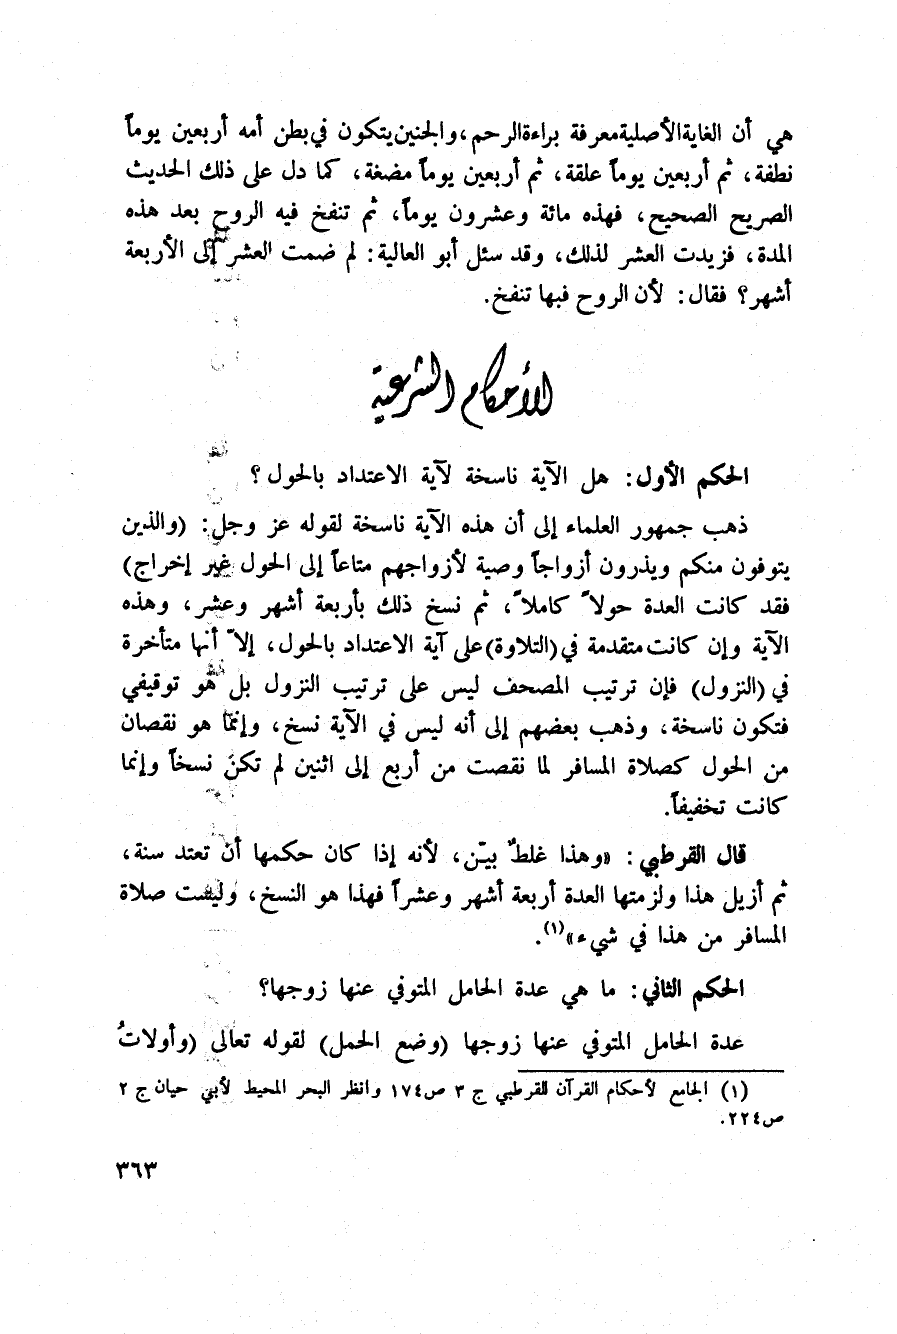 هي أن الغاية الأصلية معرفة براءة الرحم، والجنين يتكون في بطن أمه أربعين يوماً
نطفة، ثم أربعين يوماً علقة، ثم أربعين يوماً مضغة، كما دل على ذلك الحديث
الصريح الصحيح، فهذه مائة وعشرون يوماً، ثم تنفخ فيه الروح بعد هذه
المدة، فزيدت العشر لذلك، وقد سئل أبو العالية: لم ضمت العشر إلى الأربعة
أشهر؟ فقال: لأن الروح فيها تنفخ.
الأحكام الشرعية
الحكم الأول: هل الآية ناسخة لآية الاعتداد بالحول؟
ذهب جمهور العلماء إلى أن هذه الآية ناسخة لقوله عز وجل: (والذين
يتوفون منكم ويذرون أزواجاً وصية لأزواجهم متاعاً إلى الحول غير إخراج)
فقد كانت العدة حولاً كاملاً، ثم نسخ ذلك بأربعة أشهر وعشر، وهذه
الآية وإن كانت متقدمة في (التلاوة) على آية الاعتداد بالحول، إلاّ أنها متأخرة
في (النزول) فإن ترتيب المصحف ليس على ترتيب النزول بل هو توقيفي
فتكون ناسخة، وذهب بعضهم إلى أنه ليس في الآية نسخ، وإنما هو نقصان
من الحول كصلاة المسافر لما نقصت من أربع إلى اثنين لم تكن نسخاً وإنما
كانت تخفيفاً.
قال القرطبي: «وهذا غلطٌ بيّن، لأنه إذا كان حكمها أن تعتد سنة،
ثم أزيل هذا ولزمتها العدة أربعة أشهر وعشراً فهذا هو النسخ، وليست صلاة
المسافر من هذا في شيء»(١).
الحكم الثاني: ما هي عدة الحامل المتوفي عنها زوجها؟
عدة الحامل المتوفي عنها زوجها (وضع الحمل) لقوله تعالى (وأولاتُ
(١) الجامع لأحكام القرآن للقرطبي ج ٣ ص١٧٤ وانظر البحر المحيط لأبي حيان ج ٢
ص٢٢٤.
٣٦٣